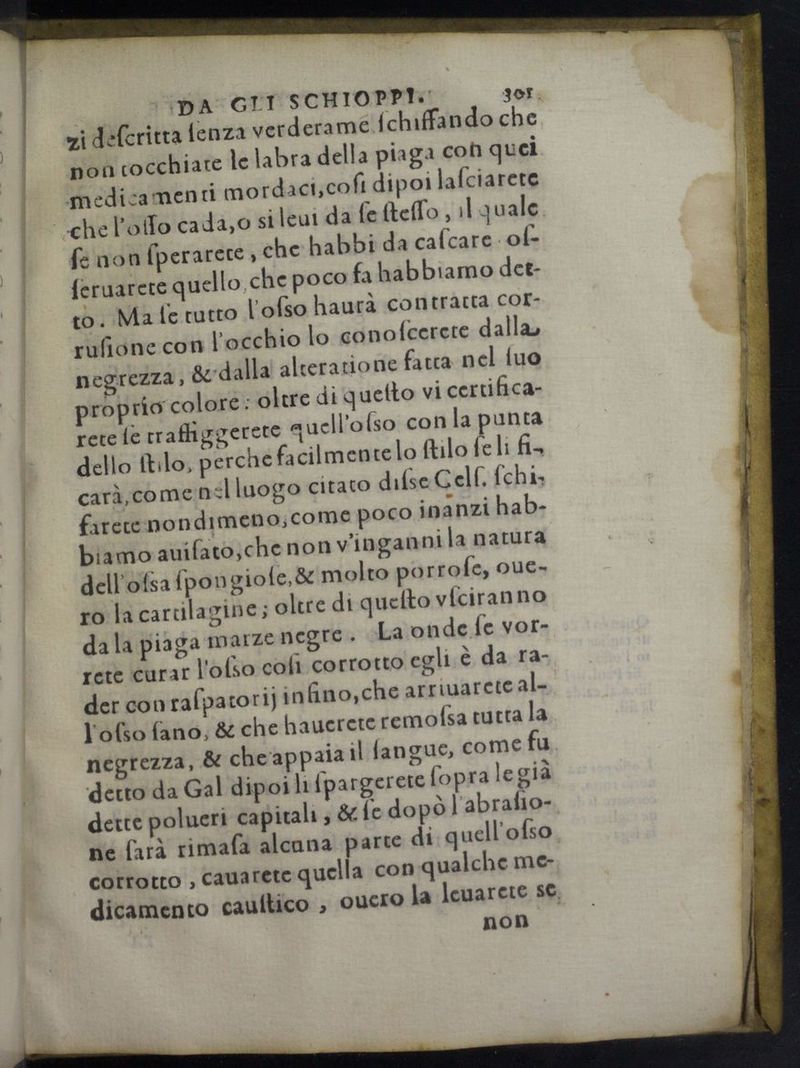 DA GLI SCHIOPPI. 301
zi descritta senza verderame schiffando che
non tocchiate le labra della piaga con quei
medicamenti mordaci,cosi dipoi lasciarete
che l'osso cada,o si leui da se stesso, il quale
se non sperarete, che habbi da cascare os-
seruarete quello, che poco fa habbiamo det-
to. Ma se tutto l'osso haurà contratta cor-
rusione con l'occhio lo conoscerete dalla
negrezza, & dalla alteratione fatta nel suo
proprio colore: oltre di questo vi certifica-
rete se traffiggerete quell'osso con la punta
dello stilo, perche facilmente lo stilo se li fi-
carà, come nel luogo citato disse Cels. schi,
farete nondimeno,come poco inanzi hab-
biamo auisato,che non v'inganni la natura
dell'ossa spongiose,& molto porrose, oue-
ro la cartilagine; oltre di questo vsciranno
da la piaga marze negre. La onde se vor-
rete curar l'osso cosi corrotto egli è da ra-
der con raspatorij infino,che arriuarete al-
l'osso sano, & che hauerete remossa tutta la
negrezza, & che appaia il sangue, come fu
detto da Gal dipoi li spargerete sopra le già
dette polueri capitali, & se dopò l'abrasio-
ne sarà rimasa alcuna parte di quell'osso
corrotto, cauarete quella con qualche me-
dicamento caustico, ouero la leuarete se
non